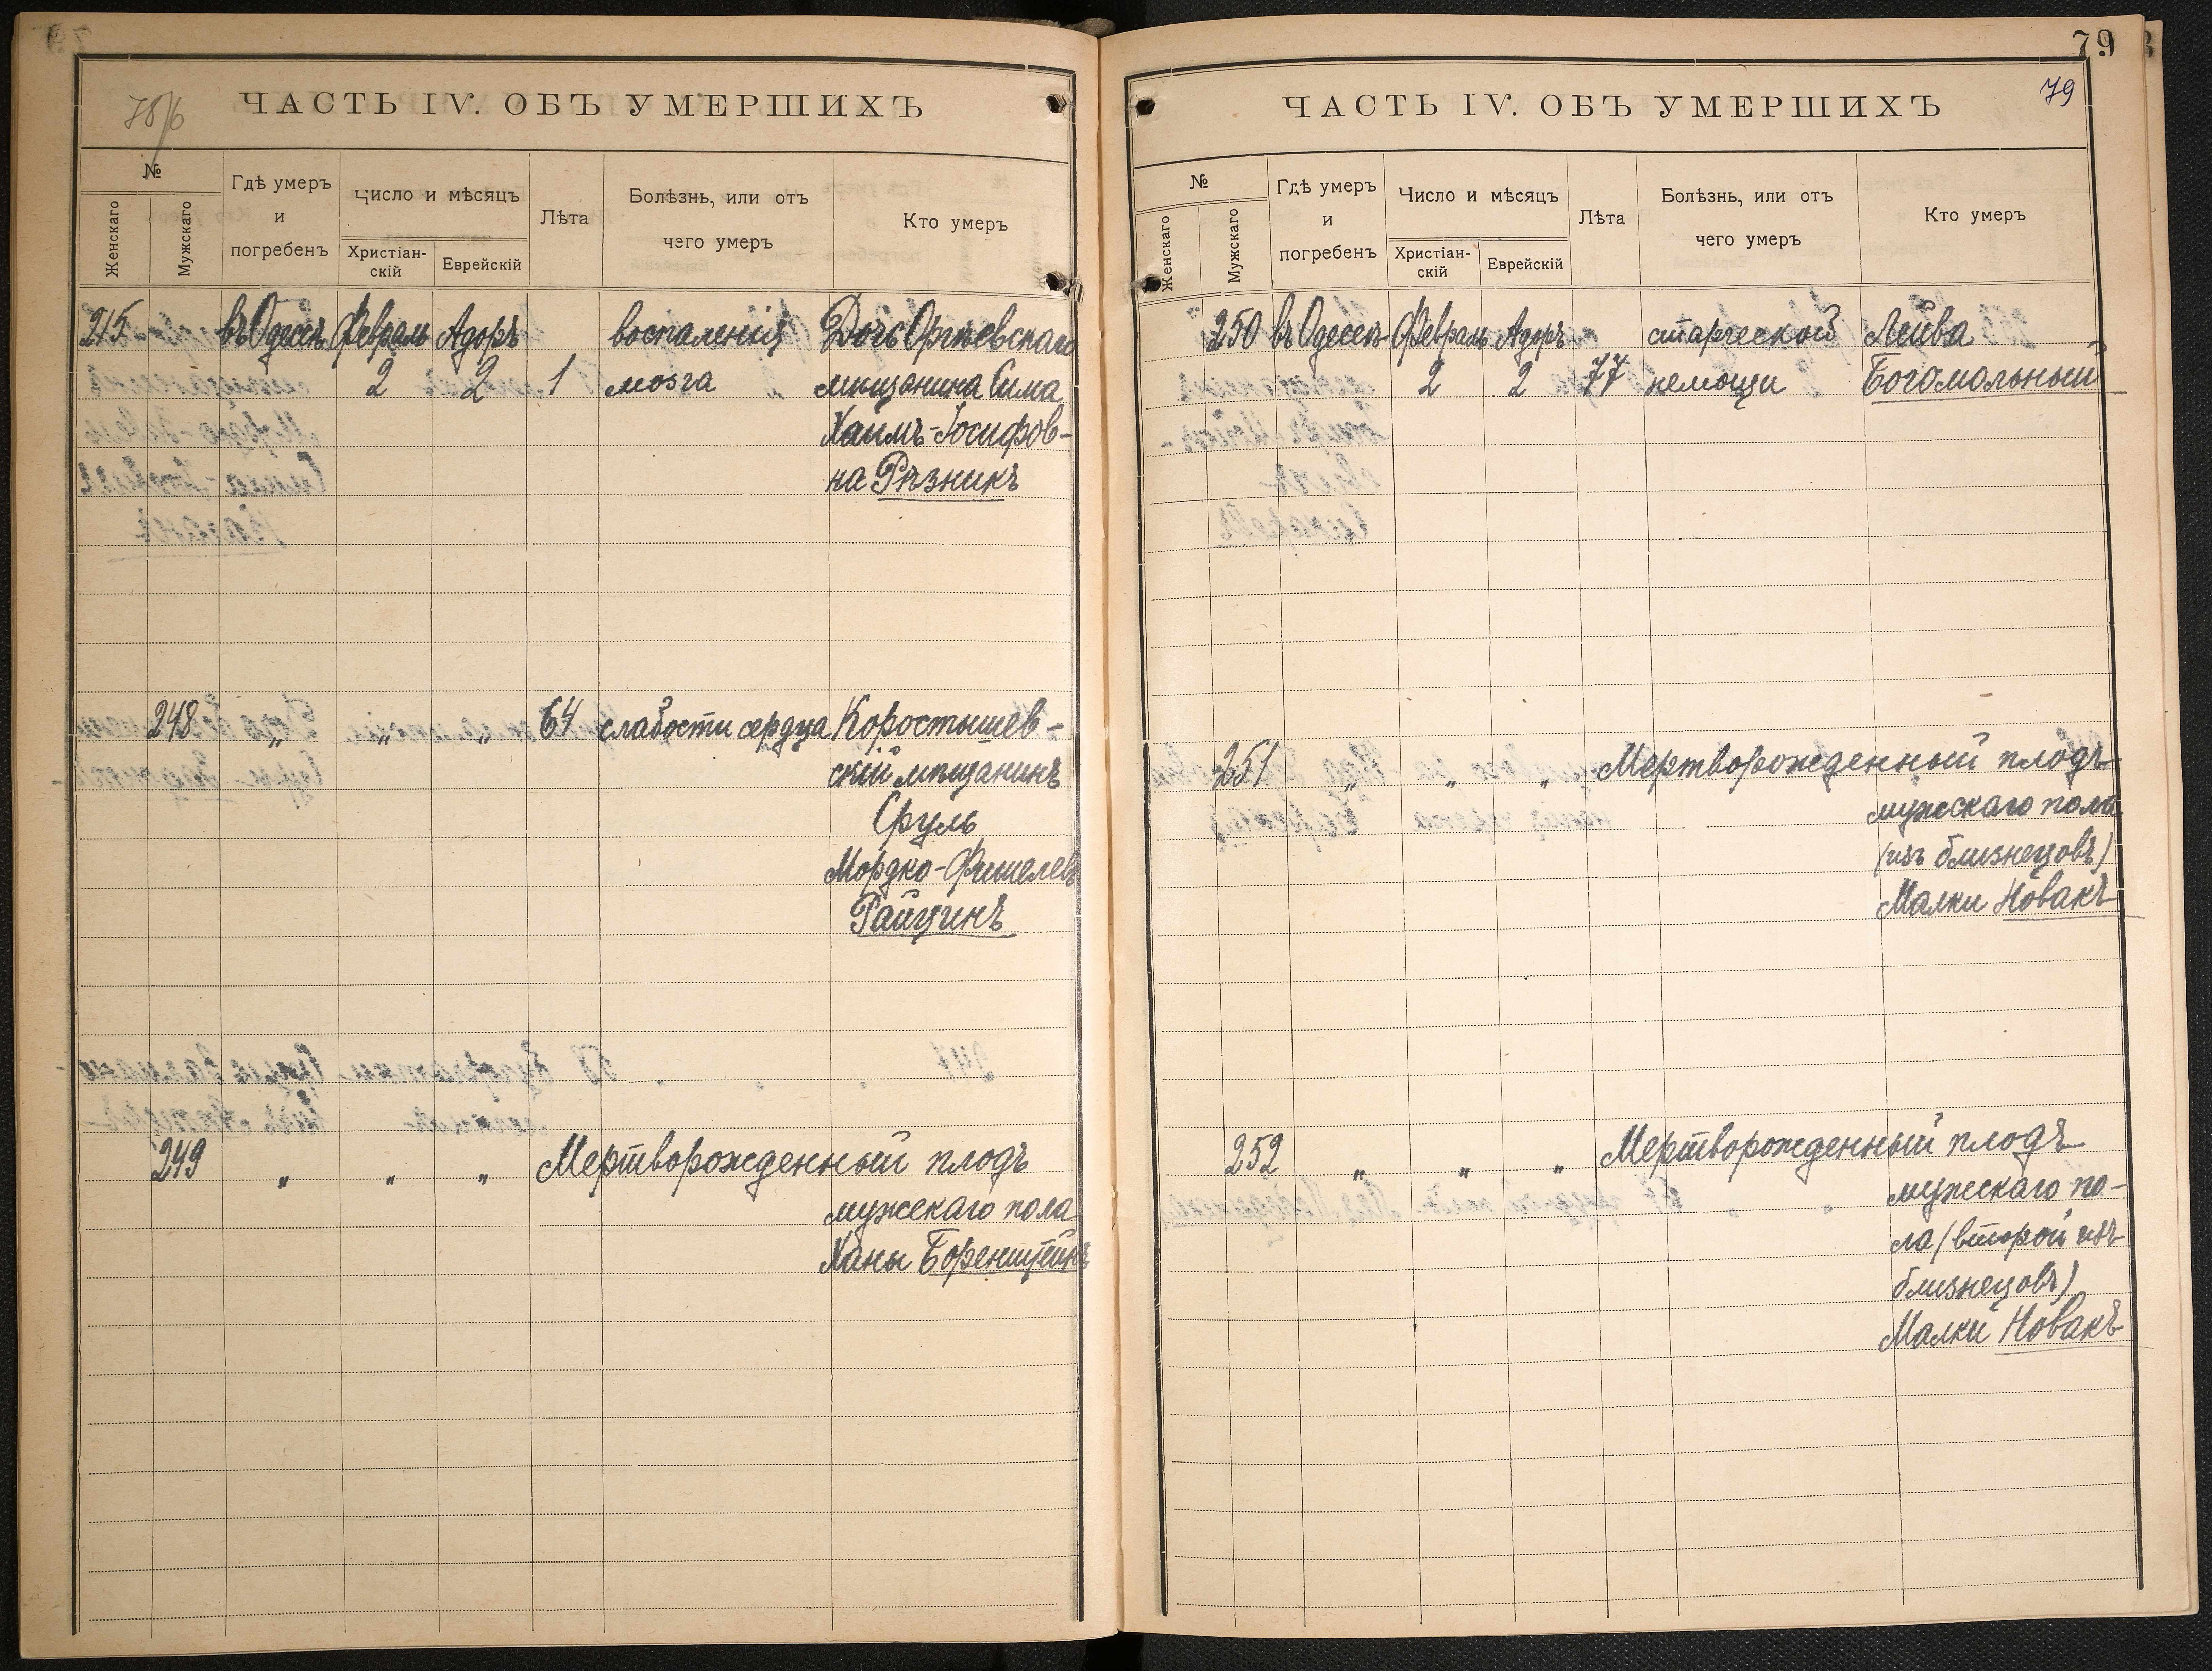 ЧАСТЬ IV. ОБЪ УМЕРШИХЪ
№
Женскаго
Мужскаго
Гдѣ умеръ
и
погребенъ
Число и мѣсяцъ
Христіан-
скій
Еврейскій
Лѣта
Болѣзнь, или отъ
чего умеръ
Кто умеръ
215 въ Одессѣ Февраль Адоръ воспаленія Дочь Оргѣевскаго
2 2 1 мозга мѣщанина Сима
Хаимъ-Іосифов-
на Рѣзникъ
248 „ „ „ 64 слабости сердца Коростышев-
скій мѣщанинъ
Сруль
Мордко-Фишелевъ
Райцинъ
249 „ „ „ Мертворожденный плодъ
мужскаго пола
Ханы Боренштейнъ
79
ЧАСТЬ IV. ОБЪ УМЕРШИХЪ
79
№
Женскаго
Мужскаго
Гдѣ умеръ
и
погребенъ
Число и мѣсяцъ
Христіан-
скій
Еврейскій
Лѣта
Болѣзнь, или отъ
чего умеръ
Кто умеръ
250 въ Одессѣ Февраль Адоръ старческой Лейва
2 2 77 немощи Богомольный
251 „ „ „ Мертворожденный плодъ
мужскаго пола
(изъ близнецовъ)
Малки Новакъ
252 „ „ „ Мертворожденный плодъ
мужскаго по-
ла (второй изъ
близнецовъ)
Малки Новакъ